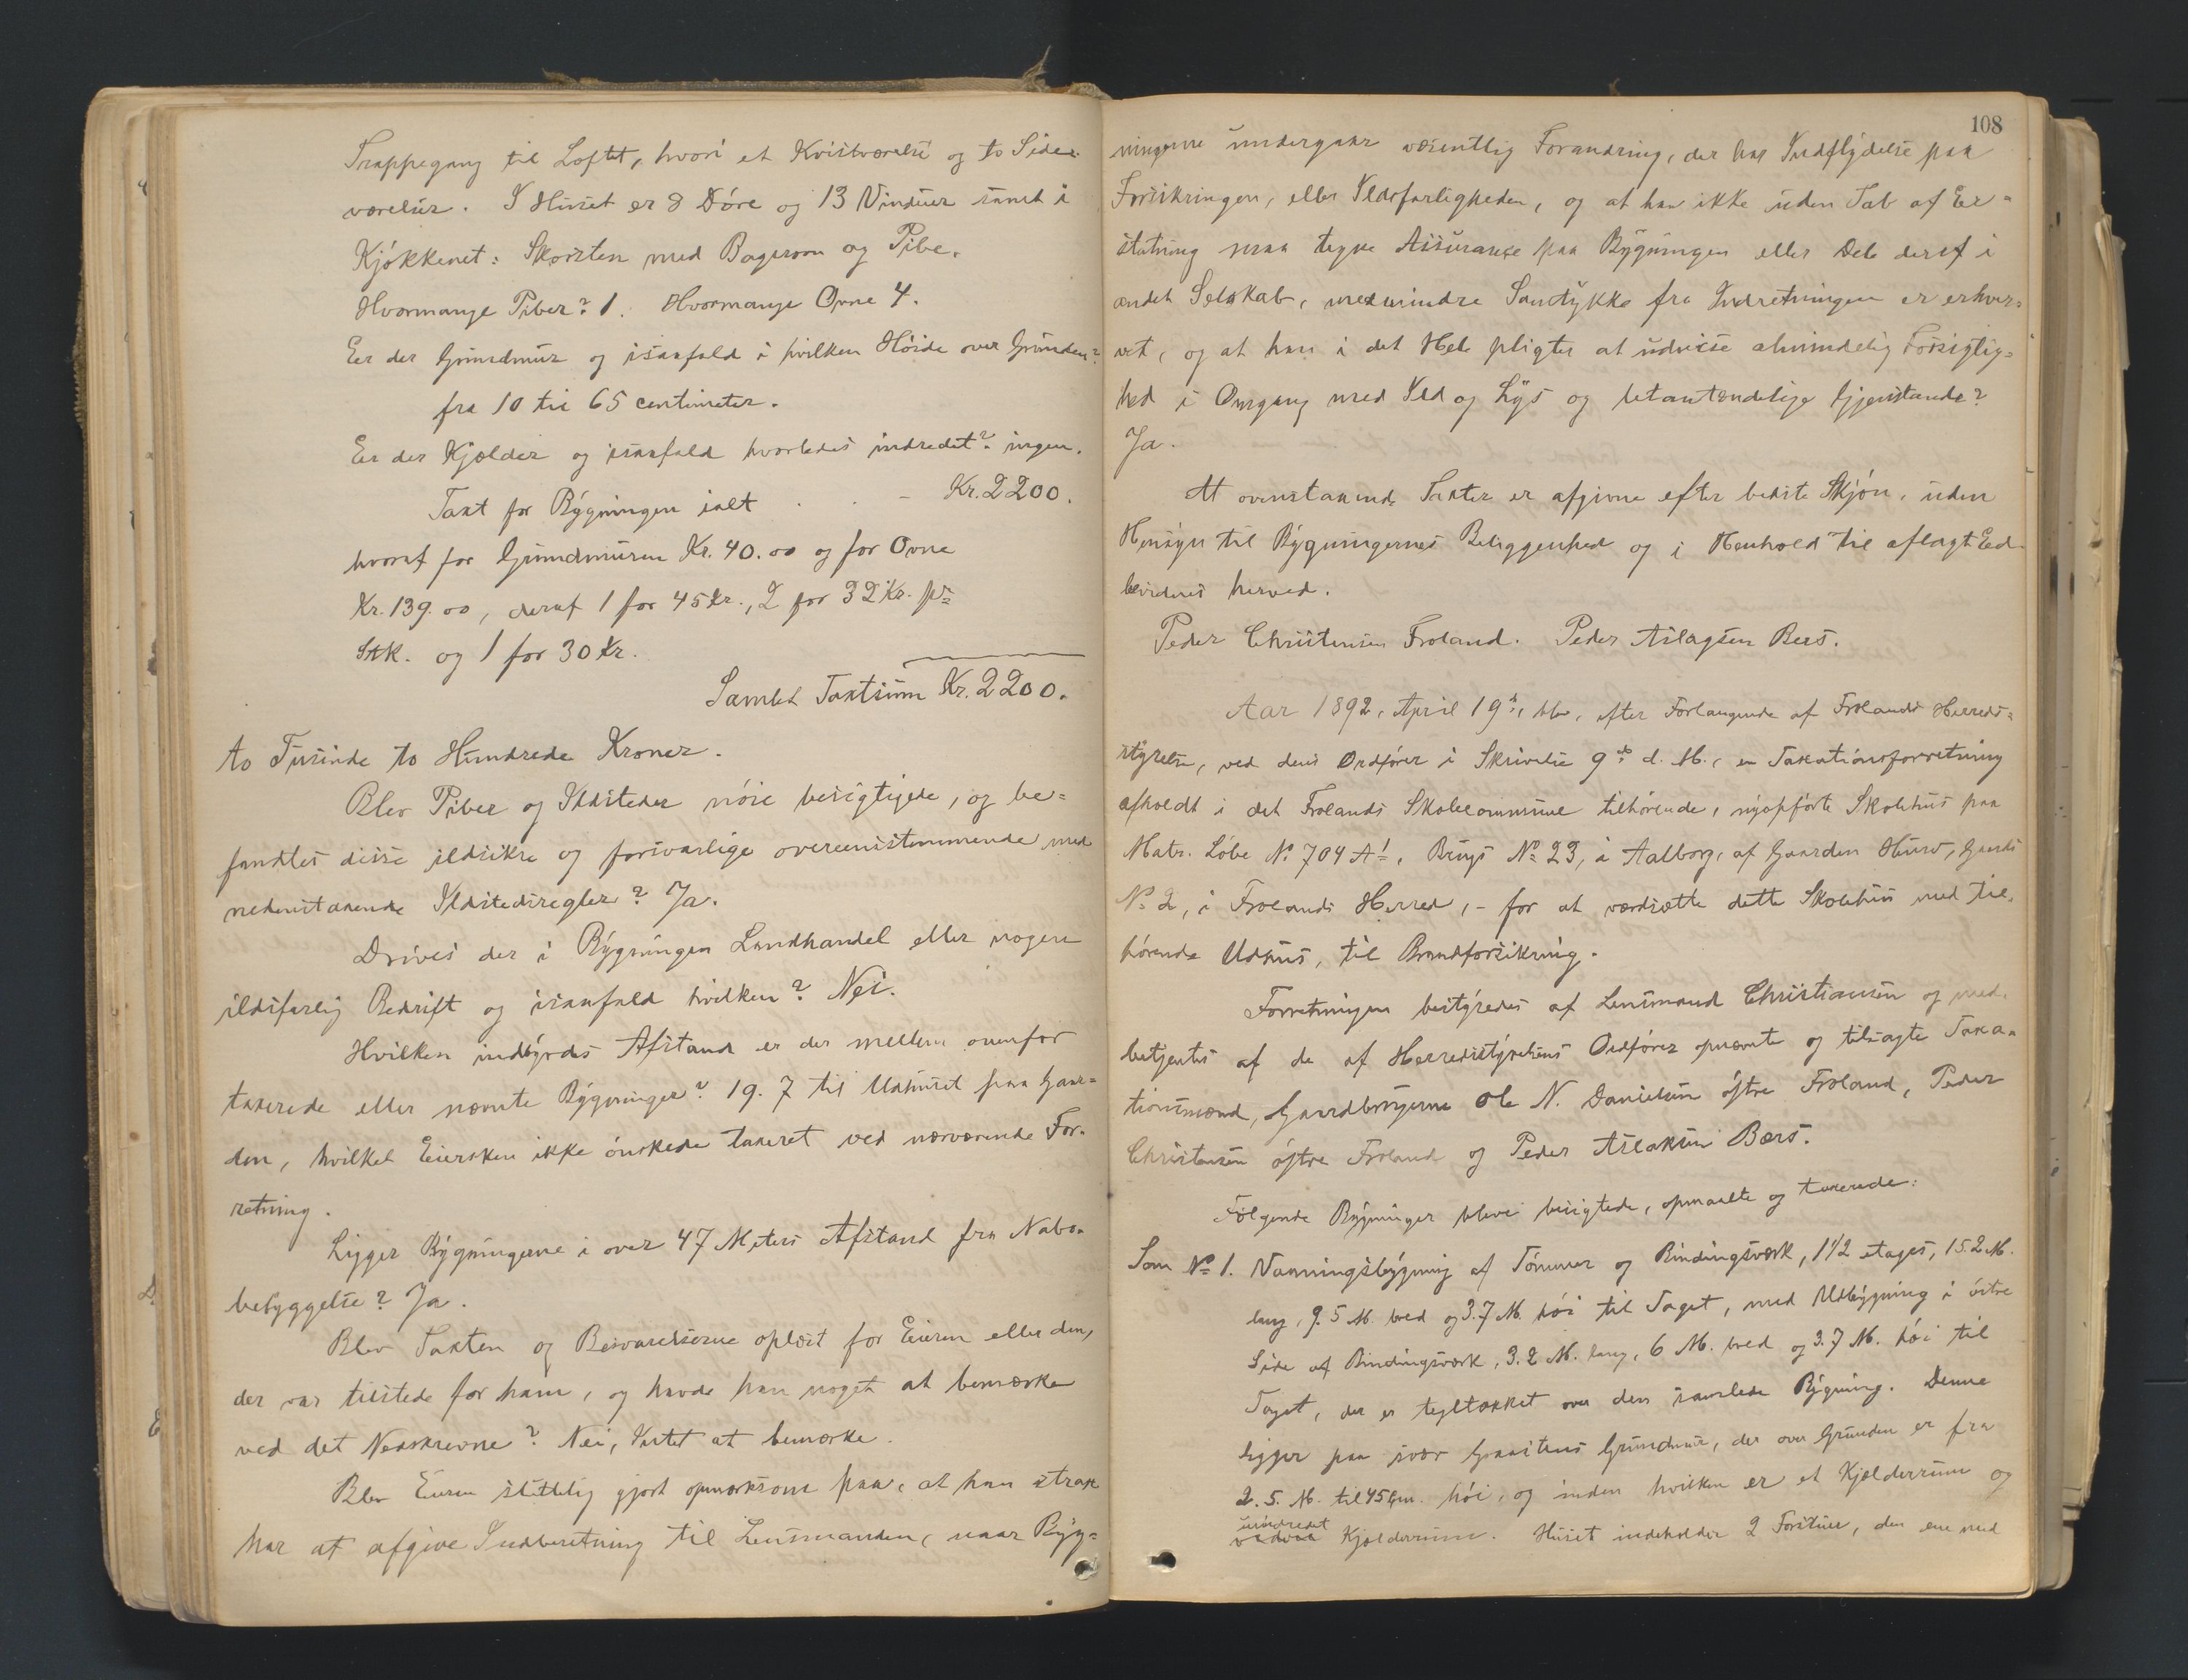 Trappegang til Loftet, hvori et Kvistværelse og to Side-
værelser. I Huset er 8 Døre og 13 Vinduer samt i
Kjøkkenet: Skorsten med Bagerovn og Pibe.
Hvormange Piber? 1. Hvormange Ovne 4.
Er der Grundmur og isaafald i hvilken Høide over Grunden?
fra 10 til 65 centimeter.
Er der Kjælder og isaafald hvorledes indredet? ingen.
Taxt for Bygningen ialt . . - Kr. 2200.
hvoraf for Grundmuren Kr. 40.00 og for Ovne
Kr. 139.00, deraf 1 for 45 Kr., 2 for 32 Kr. pr.
Stk. og 1 for 30 Kr.
Samlet Taxtsum Kr. 2200.
to Tusinde to Hundrede Kroner.
Blev Piber og Ildsteder nøie besigtigede, og be=
fandtes disse ildsikre og forsvarlige overeenstemmende med
nedenstaaende Ildstedsregler? Ja.
Drives der i Bygningen Landhandel eller nogen
ildsfarlig Bedrift og isaafald hvilken? Nei.
Hvilken indbyrdes Afstand er der mellem ovenfor
taxerede eller nævnte Bygninger? 19.7 til Udhuset paa Gaar=
den, hvilket Eiersken ikke ønskede taxeret ved nærværende For-
retning.
Ligger Bygningerne i over 47 Meters Afstand fra Nabo-
bebyggelse? Ja.
Blev Taxten og Besvarelserne oplæst for Eieren eller den,
der var tilstede for ham, og havde han noget at bemærke
ved det Nedskrevne? Nei, Intet at bemærke.
Blev Eieren sluttelig gjort opmærksom paa, at han strax
har at afgive Indberetning til Lensmanden, naar Byg=
108
ningerne undergaar væsentlig Forandring, der har Indflydelse paa
Forsikringen, eller Ildsfarligheden, og at han ikke uden Tab af Er=
statning maa tegne Assurance paa Bygningen eller Dele deraf i
andet Selskab, medmindre Samtykke fra Indretningen er erhver=
vet, og at han i det Hele pligter at udvise almindelig Forsigtig=
hed i Omgang med Ild og Lys og letantændelige Gjenstande?
Ja.
At ovenstaaende Taxter er afgivne efter bedste Skjøn, uden
Hensyn til Bygningernes Beliggenhed og i Henhold til aflagt Eed
bevidnes herved.
Peder Christensen Froland. Peder Aslagsen Bers.
Aar 1892, April 19de, blev, efter Forlangende af Frolands Herreds=
styrelse, ved dens Ordfører i Skrivelse 9de d. M., en Taxationsforretning
afholdt i det Frolands Skolecommune tilhørende, nyopførte Skolehus paa
Matr. Løbe No 704 A1, Brugs No 23, i Aalborg, af Gaarden Hurv, Gaards
No 2, i Frolands Herred, - for at værdsætte dette Skolehus med til-
hørende Udhus, til Brandforsikring.
Forretningen bestyredes af Lensmand Christiansen og med-
betjentes af de af Herredsstyrelsens Ordfører opnævnte og tilsagte Taxa=
tionsmænd, Gaardbrugerne Ole N. Danielsen østre Froland, Peder
Christensen østre Froland og Peder Aslaksen Bærs.
Følgende Bygninger bleve besigtede, opmaalte og taxerede:
Som No 1. Vaaningsbygning af Tømmer og Bindingsværk, 1 1/2 etages, 15.2 M.
lang, 9.5 M. bred og 3.7 M. høi til Taget, med Udbygning i østre
Side af Bindingsværk, 3.2 M. lang, 6 M. bred og 3.7 M. høi til
Taget, der er tegltækket over den samlede Bygning. Denne
ligger paa svær Graastens Grundmur, der over Grunden er fra
2.5. M. til 45 Cm. høi, og inden hvilken er et Kjælderrum og
uindredet
Kjælderrum. Huset indeholder 2 Forstuer, den ene med